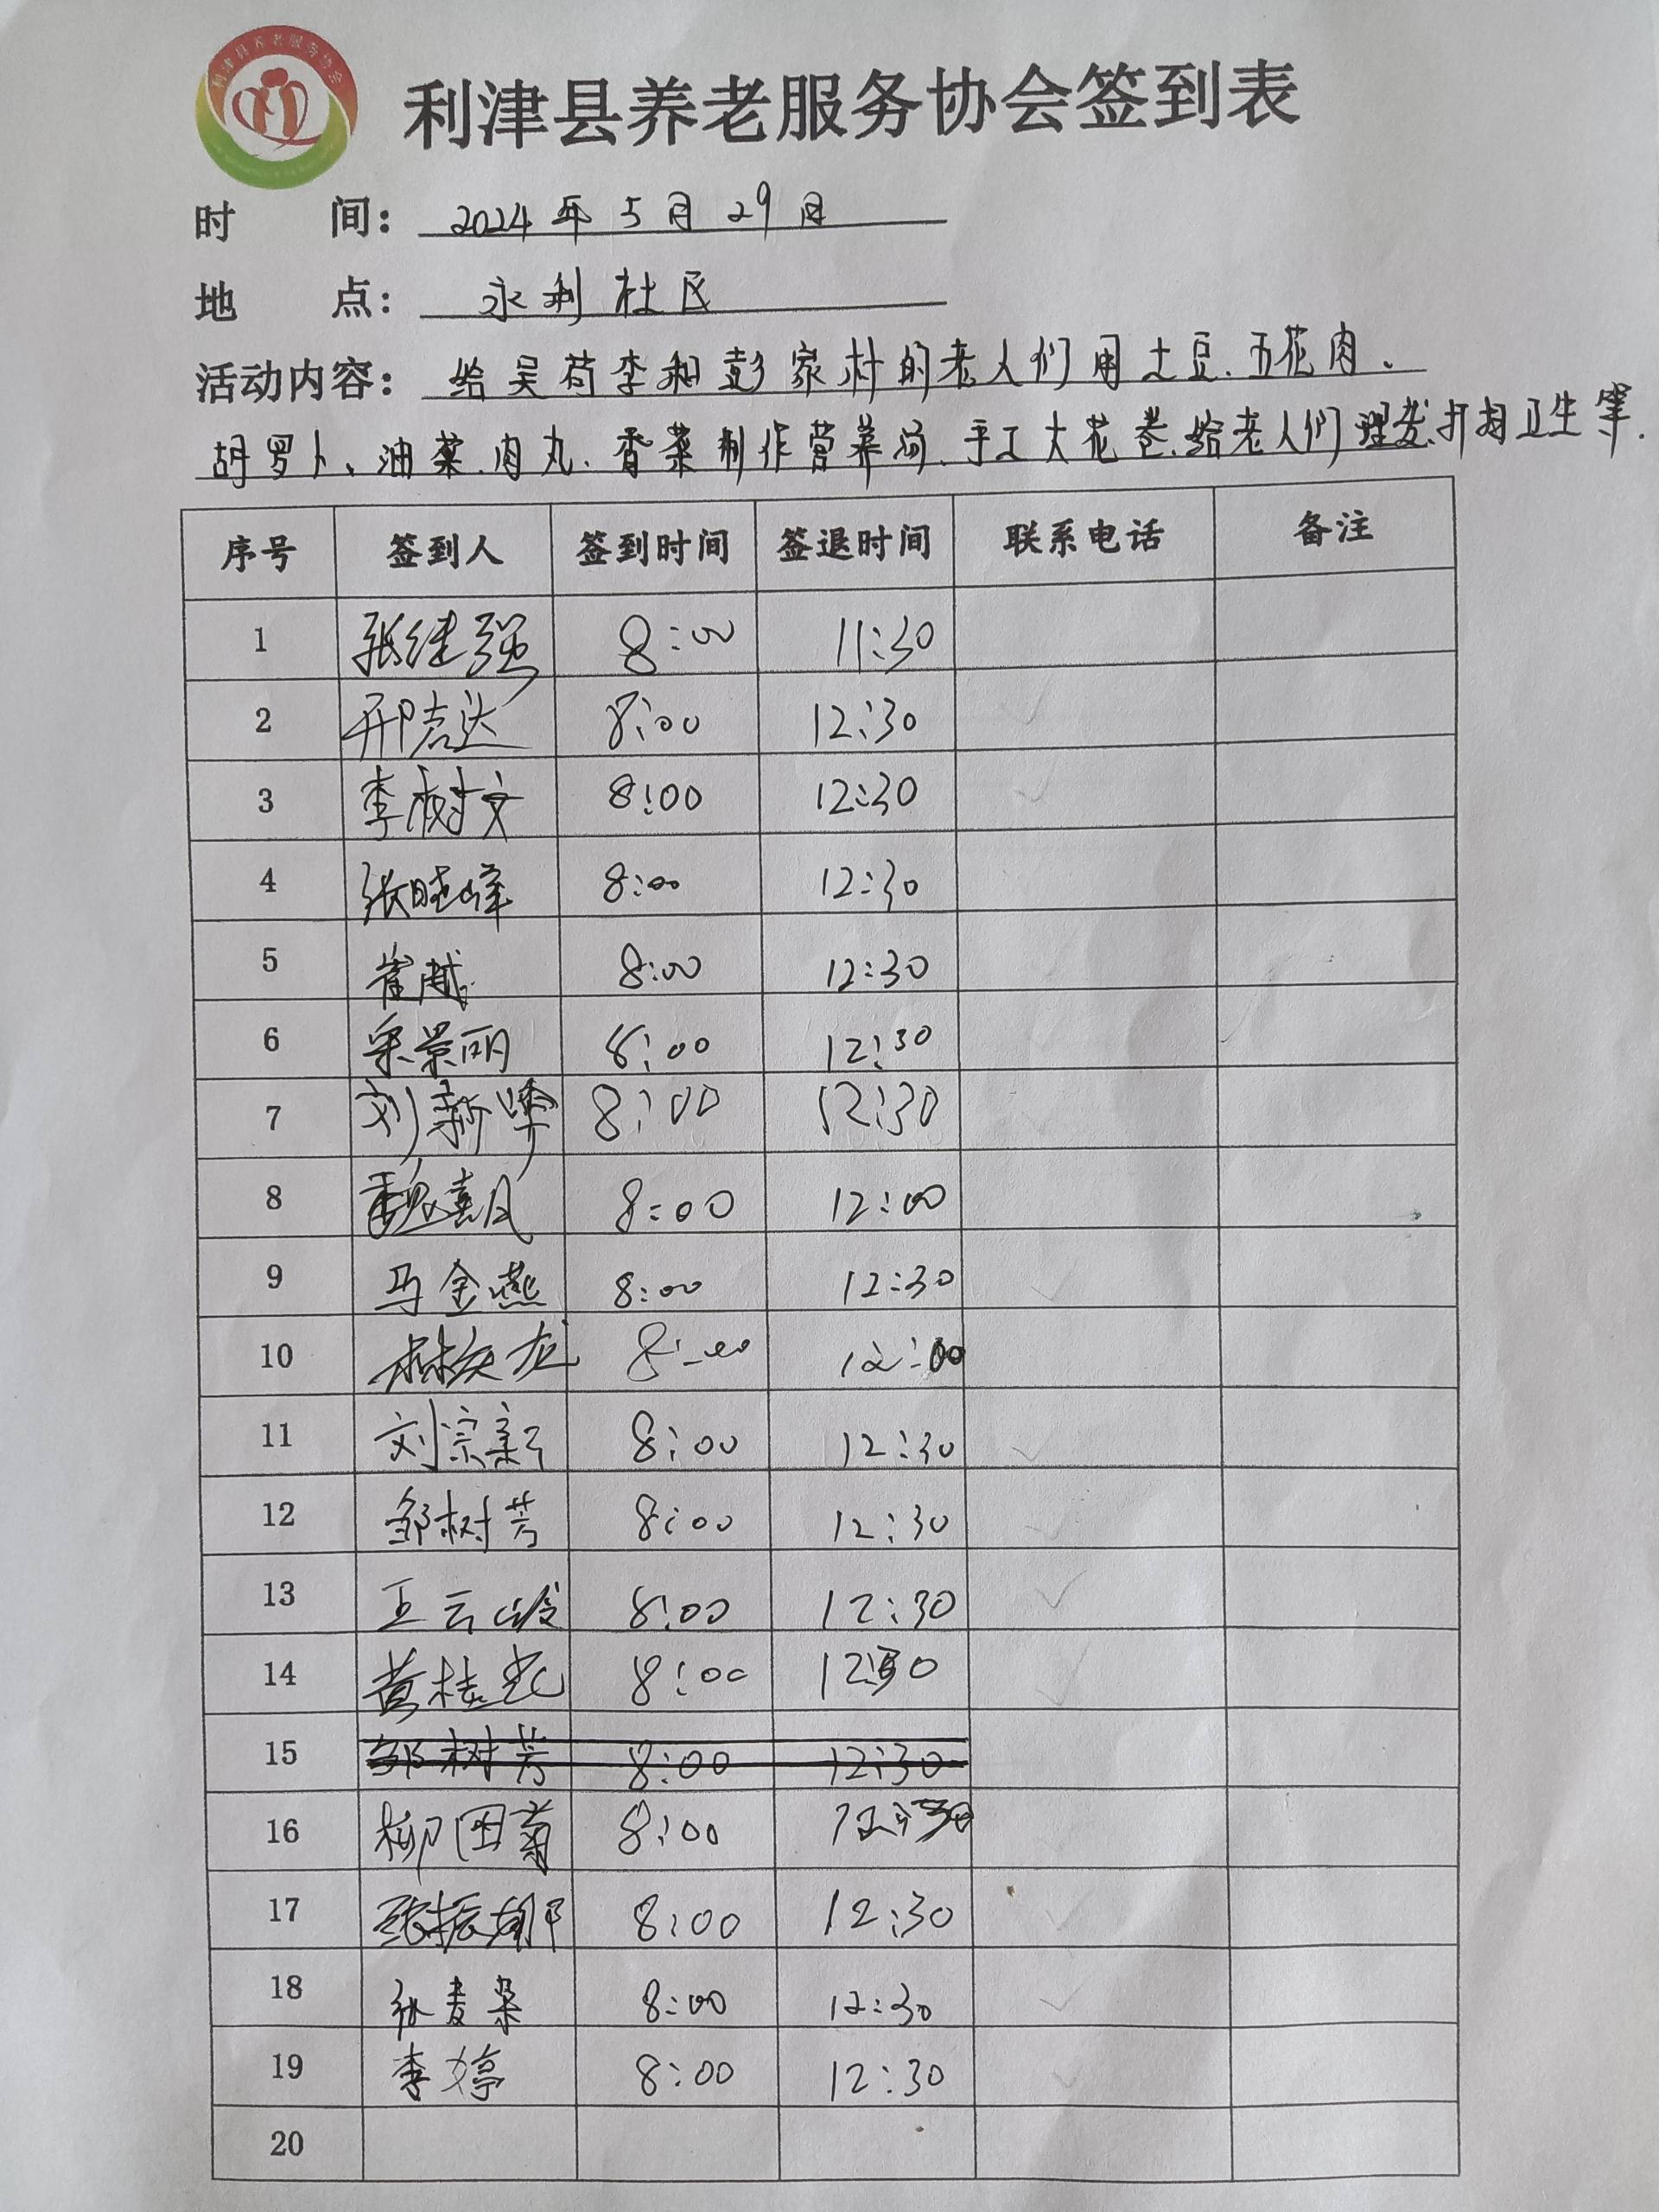 利津县养老服务协会
利津县养老服务协会签到表
时 间： 2024年5月29日
地 点： 永利社区
活动内容： 给吴苟李和彭家村的老人们用土豆、五花肉、
胡罗卜、油菜、肉丸、香菜制作营养汤、手工大花卷、给老人们理发、打扫卫生等.
序号 签到人 签到时间 签退时间 联系电话 备注
1 张继强 8:00 11:30
2 邢志达 8:00 12:30
3 李树文 8:00 12:30
4 张晓峰 8:00 12:30
5 崔越 8:00 12:30
6 景丽 8:00 12:30
7 刘新 8:00 12:30
8 魏凤 8:00 12:00
9 马金燕 8:00 12:30
10 林 龙 8:00 12:00
11 刘宗新 8:00 12:30
12 邹树芳 8:00 12:30
13 王云 8:00 12:30
14 黄桂 8:00 12:30
15 邹树芳 8:00 12:30
16 柳田菊 8:00 12:30
17 张振 8:00 12:30
18 张 8:00 12:30
19 李婷 8:00 12:30
20